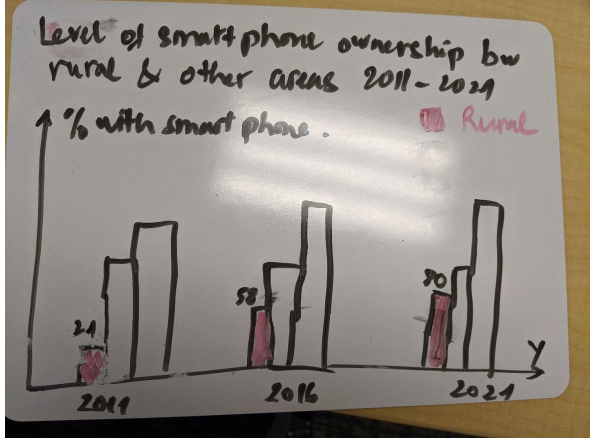 Level of smart phone ownership bw
rural & other areas 2011-2021
% with smart phone.
Rural
21
58
80
Y
2011
2016
2021